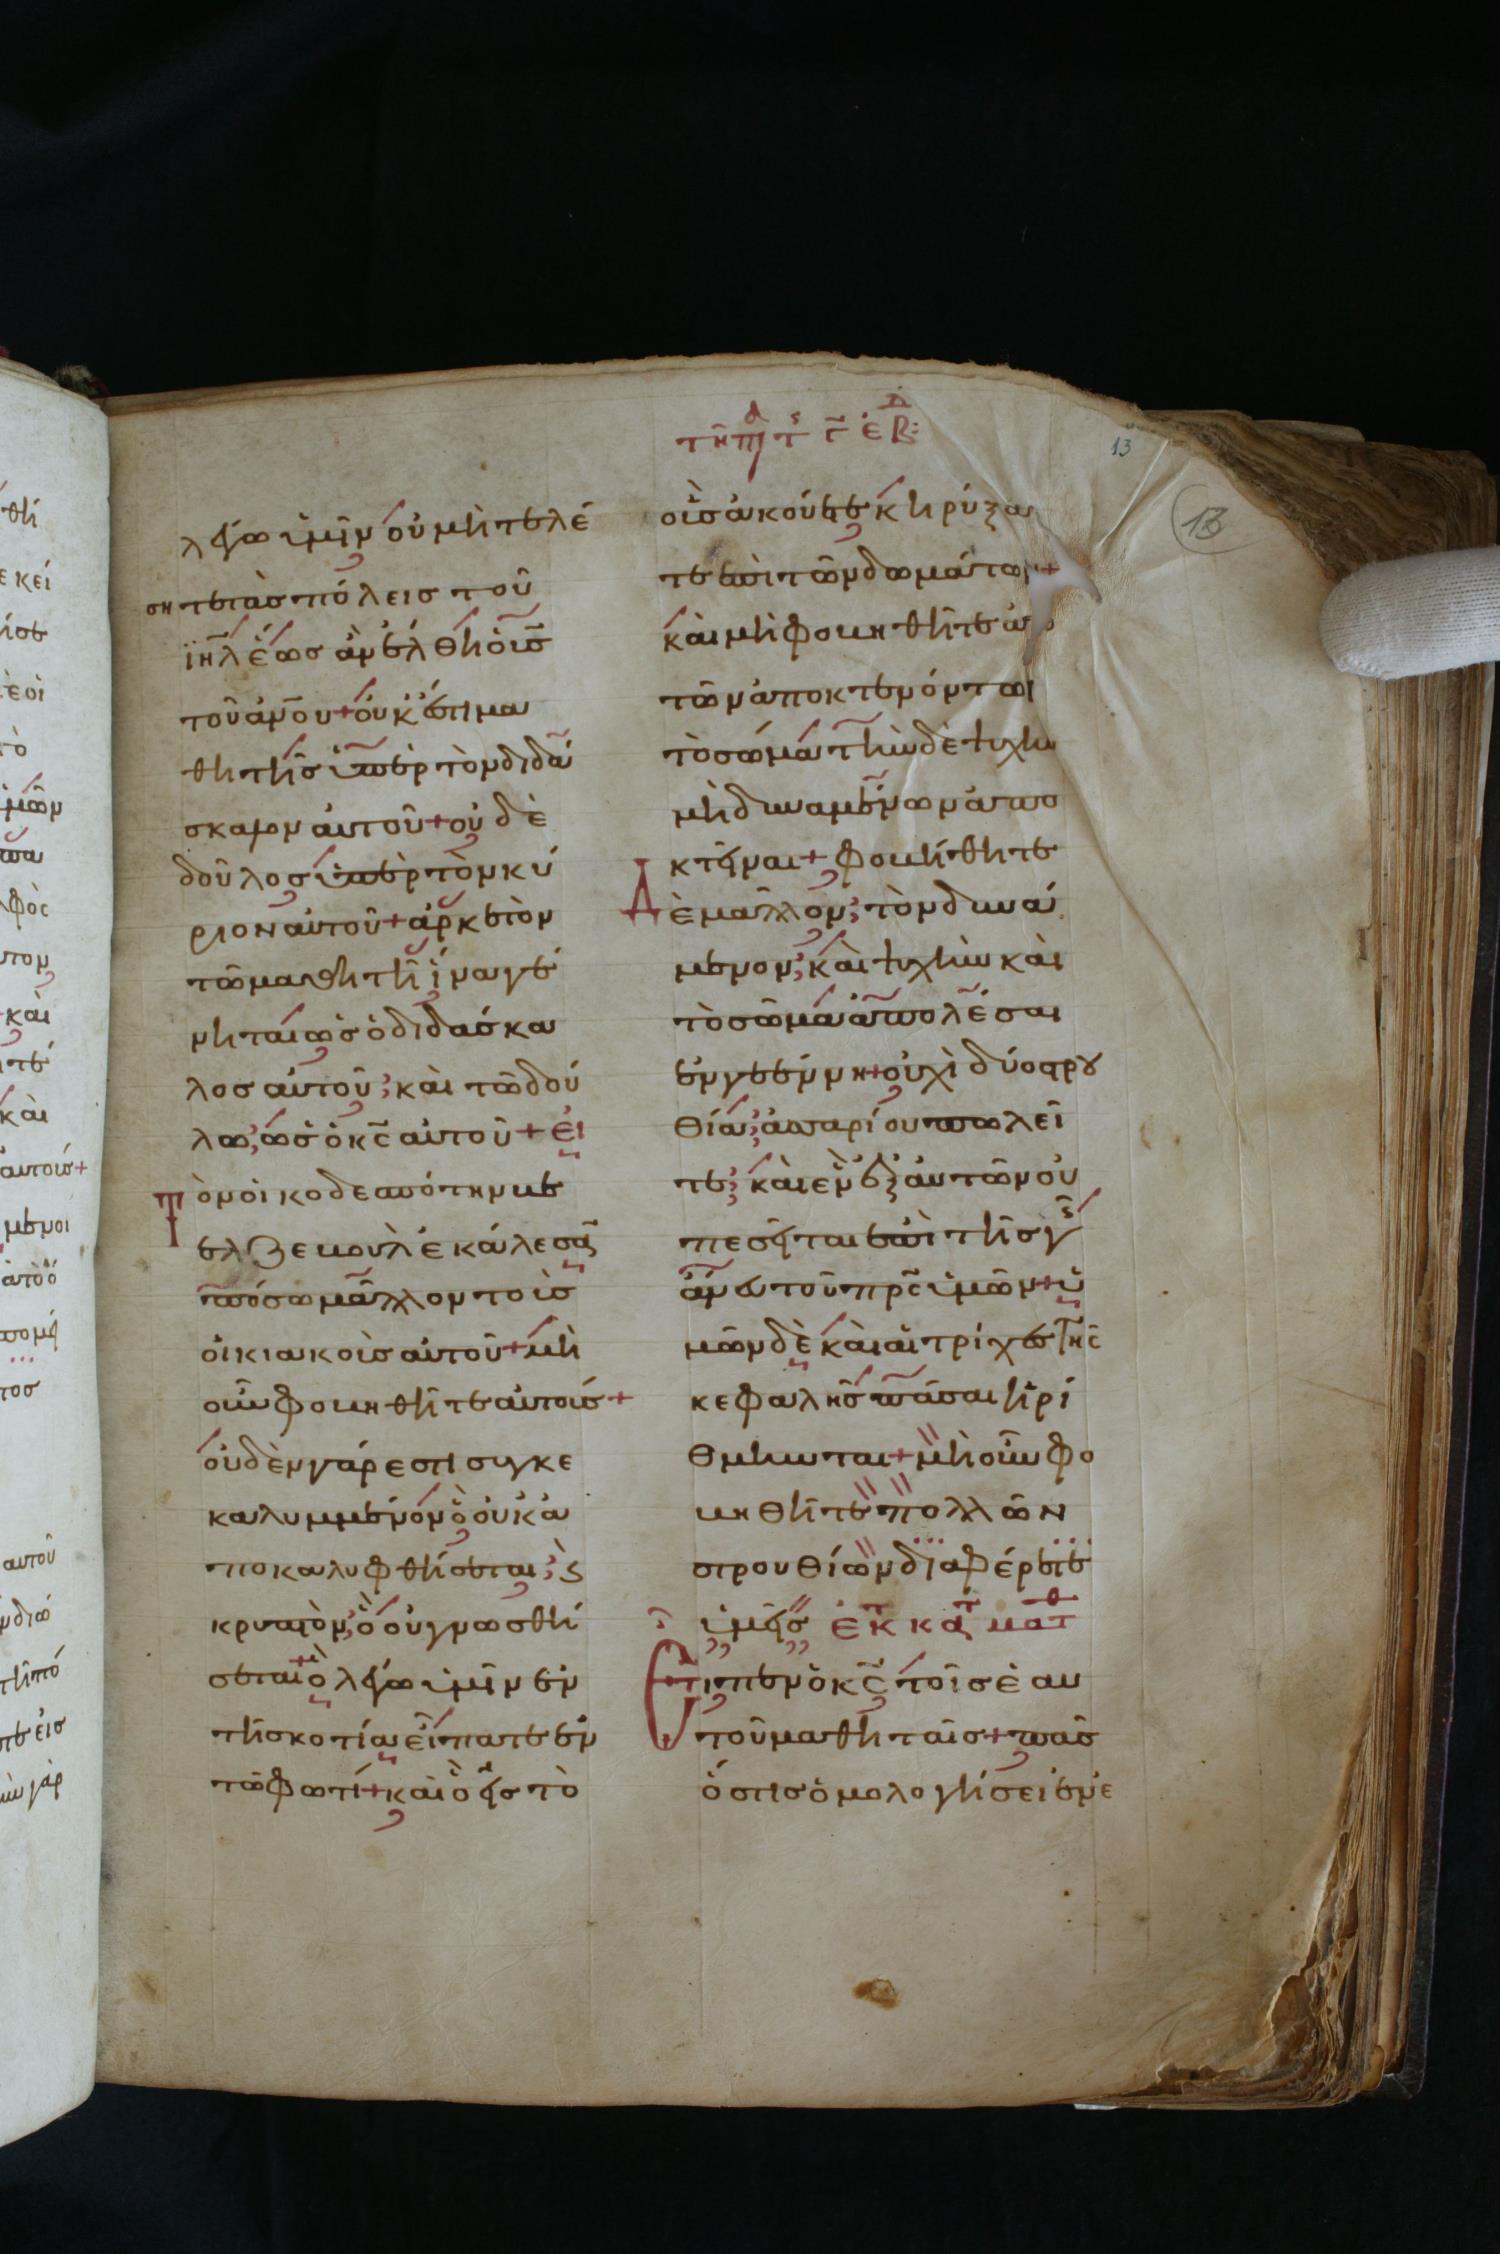 τῆ π̅α̅ρ̅ τ̅ς̅ γ̅ ἐβδ:
13
13
λέγω ὑμῖν οὐ μὴ τελέ
σητε τὰς πόλεις τοῦ
ι̅η̅λ̅ ἕως ἂν ἔλθη ὁ υ̅ς̅
τοῦ α̅ν̅ο̅υ̅ + οὐκ ἔστι μα
θητὴς ὑπὲρ τὸν διδά
σκαλον αὐτοῦ + οὐδὲ
δοῦλος ὑπὲρ τὸν κύ
ριον αὐτοῦ + ἀρκετὸν
τῶ μαθητῆ ἵνα γέ
νηται ὡς ὁ διδάσκα
λος αὐτοῦ; καὶ τῶ δού
λω; ὡς ὁ κ̅ς̅ αὐτοῦ + εἰ
τὸν οἰκοδεσπότην βε
ελζεβουλ ἐκάλεσαν
πόσω μᾶλλον τοῖς
οἰκιακοῖς αὐτοῦ + μὴ
οὖν φοβηθῆτε αὐτούς +
οὐδὲν γάρ ἐστι συγκε
καλυμμένον ὃ οὐκ ἀ
ποκαλυφθήσεται; ϛ
κρυπτόν; ὃ οὐ γνωσθή
σεται + ὃ λέγω ὑμῖν ἐν
τῆ σκοτία εἴπατε ἐν
τῶ φωτί + καὶ ὃ εἰς τὸ
οὖς ἀκούετε κηρύξα
τε ἐπὶ τῶν δωμάτων +
καὶ μὴ φοβηθῆτε ἀπὸ
τῶν ἀποκτενόντων
τὸ σῶμα τὴν δὲ ψυχὴν
μὴ δυναμένων ἀπο
κτεῖναι + φοβήθητε
δὲ μᾶλλον; τὸν δυνά
μενον; καὶ ψυχὴν καὶ
τὸ σῶμα ἀπολέσαι
ἐν γεέννη + οὐχὶ δύο στρου
θία; ἀσσαρίου πωλεῖ
τε; καὶ ἓν ἐξ αὐτῶν οὐ
πεσεῖται ἐπὶ τῆς γῆς
ἄνευ τοῦ π̅ρ̅ς̅ ὑμῶν + ὑ
μῶν δὲ καὶ αἱ τρίχες τῆς
κεφαλῆς πᾶσαι ἠρί
θμηνται + μὴ οὖν φο
βηθῆτε πολλῶν
στρουθίων διαφέρετε
ὑμεῖς ἐκ κατ ματθ
Εἶπεν ὁ κ̅ς̅ τοῖς ἑαυ
τοῦ μαθηταῖς + πᾶς
ὅστις ὁμολογήσει ἐν ἐ